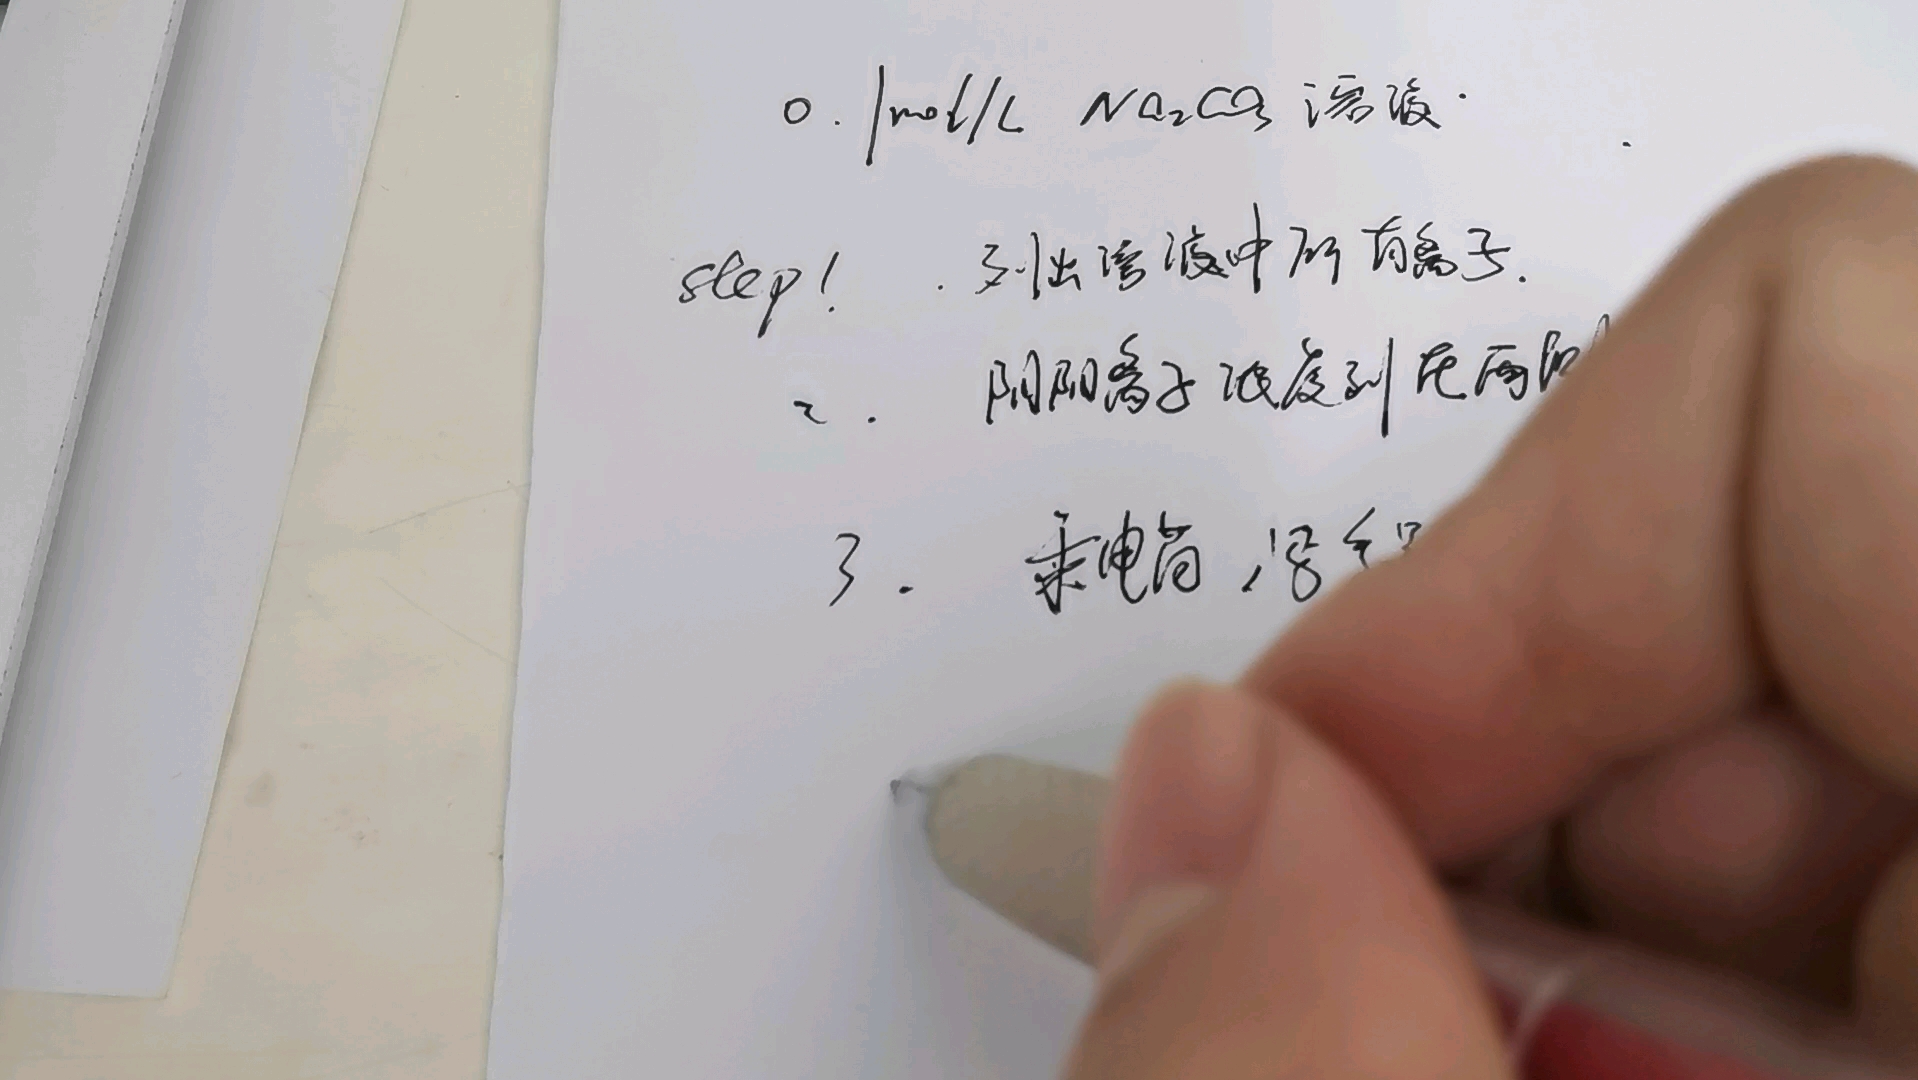 0.1mol/L Na₂CO₃溶液.
step1. 列出溶液中所有离子.
2. 阴阳离子浓度列在两
3. 乘电荷,